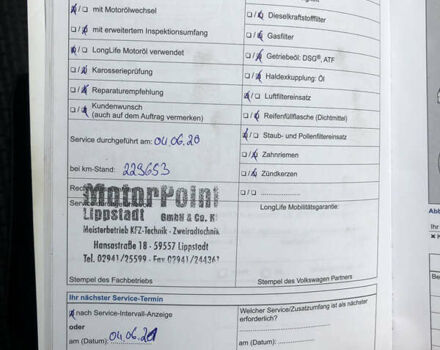 mit Motorölwechsel
mit erweitertem Inspektionsumfang
LongLife Motoröl verwendet
Karosserieprüfung
Reparaturempfehlung
Kundenwunsch
(auch auf dem Auftrag vermerken)
Service durchgeführt am: 04.06.20
bei km-Stand: 229653
MotorPoint
Lippstadt GmbH & Co. K
Meisterbetrieb KFZ-Technik - Zweiradtechnik
Hansastraße 18 - 59557 Lippstadt
Tel. 02941/25599 - Fax 02941/244361
Stempel des Fachbetriebs
Ihr nächster Service-Termin
nach Service-Intervall-Anzeige
oder
am (Datum): 04.06.21
Dieselkraftstofffilter
Gasfilter
Getriebeöl: DSG®, ATF
Haldexkupplung: Öl
Luftfiltereinsatz
Reifenfüllflasche (Dichtmittel)
Staub- und Pollenfiltereinsatz
Zahnriemen
Zündkerzen
LongLife Mobilitätsgarantie:
Stempel des Volkswagen Partners
Welcher Service/Zusatzumfang ist als nächster
erforderlich?
am (Datum):